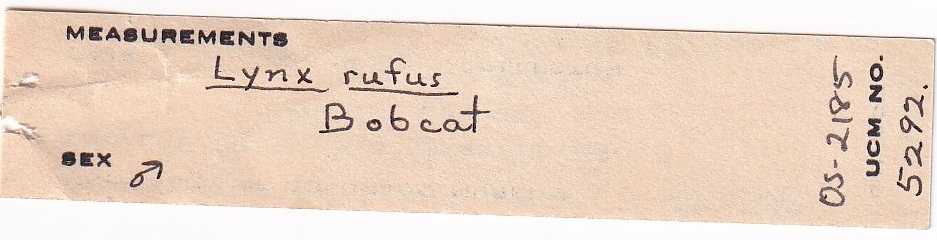 MEASUREMENTS
Lynx rufus
Bobcat
SEX ♂
OS-2185
UCM NO.
5292.